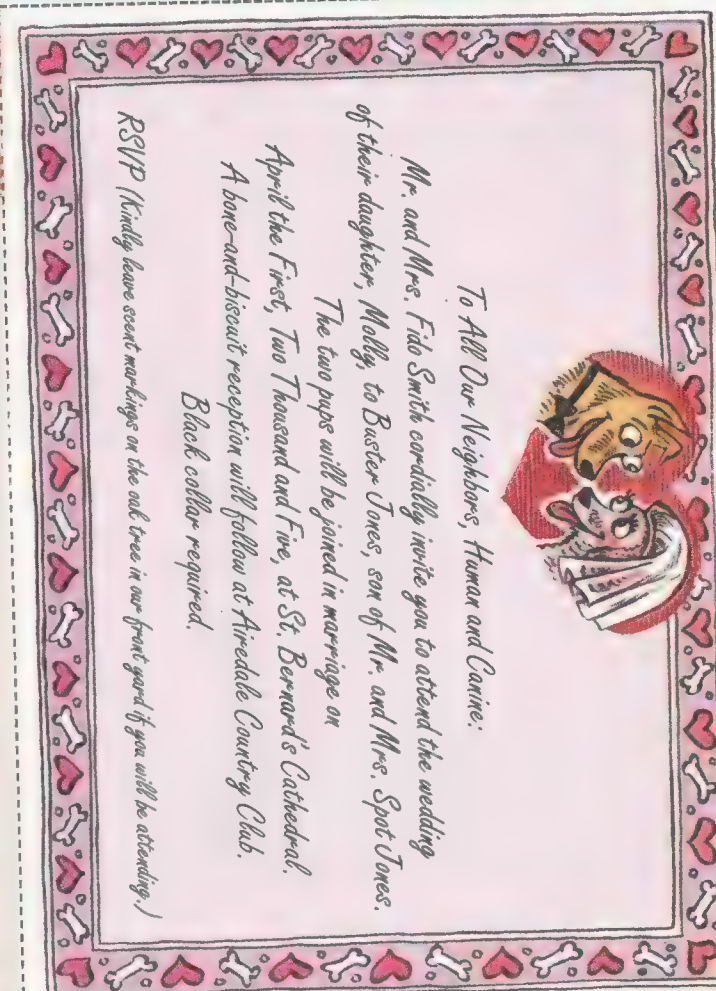 To All Our Neighbors, Human and Canine:
Mr. and Mrs. Fido Smith cordially invite you to attend the wedding
of their daughter, Molly, to Buster Jones, son of Mr. and Mrs. Spot Jones.
The two pups will be joined in marriage on
April the First, Two Thousand and Five, at St. Bernard's Cathedral.
A bone-and-biscuit reception will follow at Airedale Country Club.
Black collar required.
RSVP (Kindly leave scent markings on the oak tree in our front yard if you will be attending.)